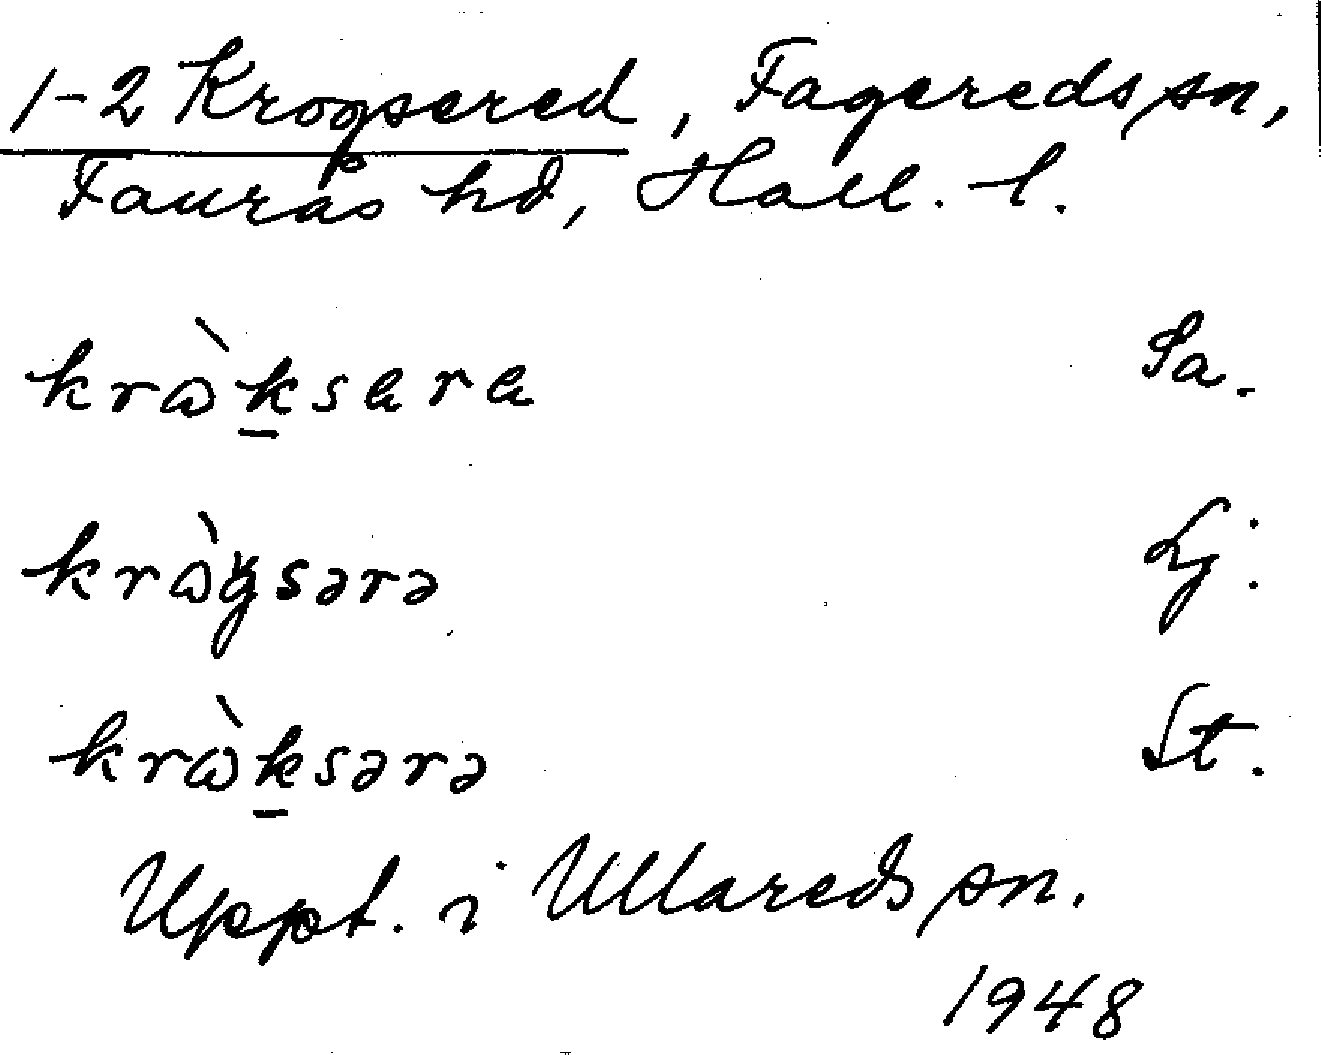 1-2 Krogsered, Fagereds sn,
Faurås hd, Hall. l.
krɷ̀k̠sara Sa.
krɷ̀gsərə Lj.
krɷ̀k̠sərə St.
Uppt. i Ullareds sn.
1948